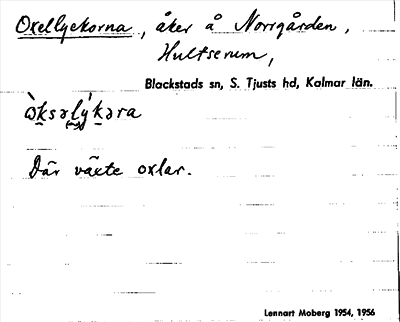 Oxellyckorna, åker å Norrgården,
Hultserum,
Blackstads sn, S. Tjusts hd, Kalmar län.
Där växte oxlar.
Lennart Moberg 1954, 1956